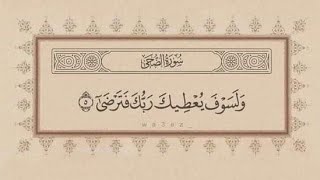 سُورَةُ الضُّحَىٰ
وَلَسَوْفَ يُعْطِيكَ رَبُّكَ فَتَرْضَىٰٓ ۝٥